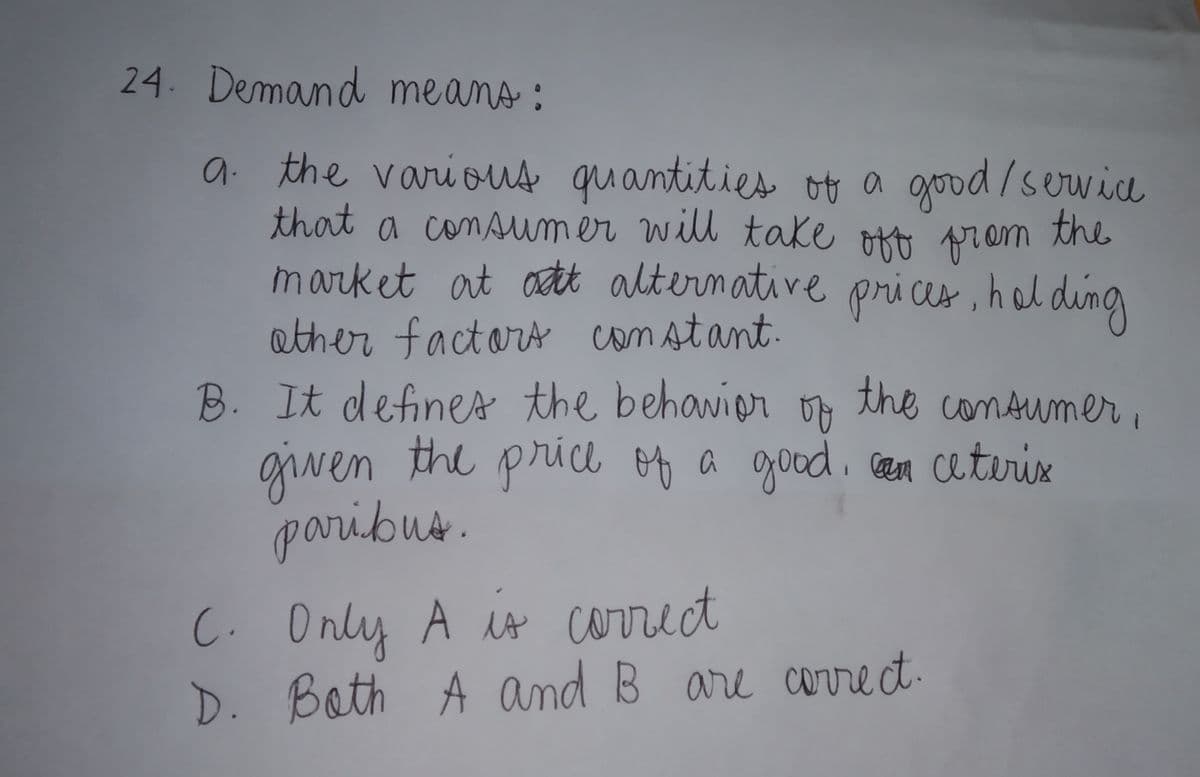 24. Demand means:
a. the various quantities of a good/service
that a consumer will take off from the
market at alternative prices, holding
other factors constant.
B. It defines the behavior of the consumer,
given the price of a good, ceteris
paribus.
C. Only A is correct
D. Both A and B are correct.